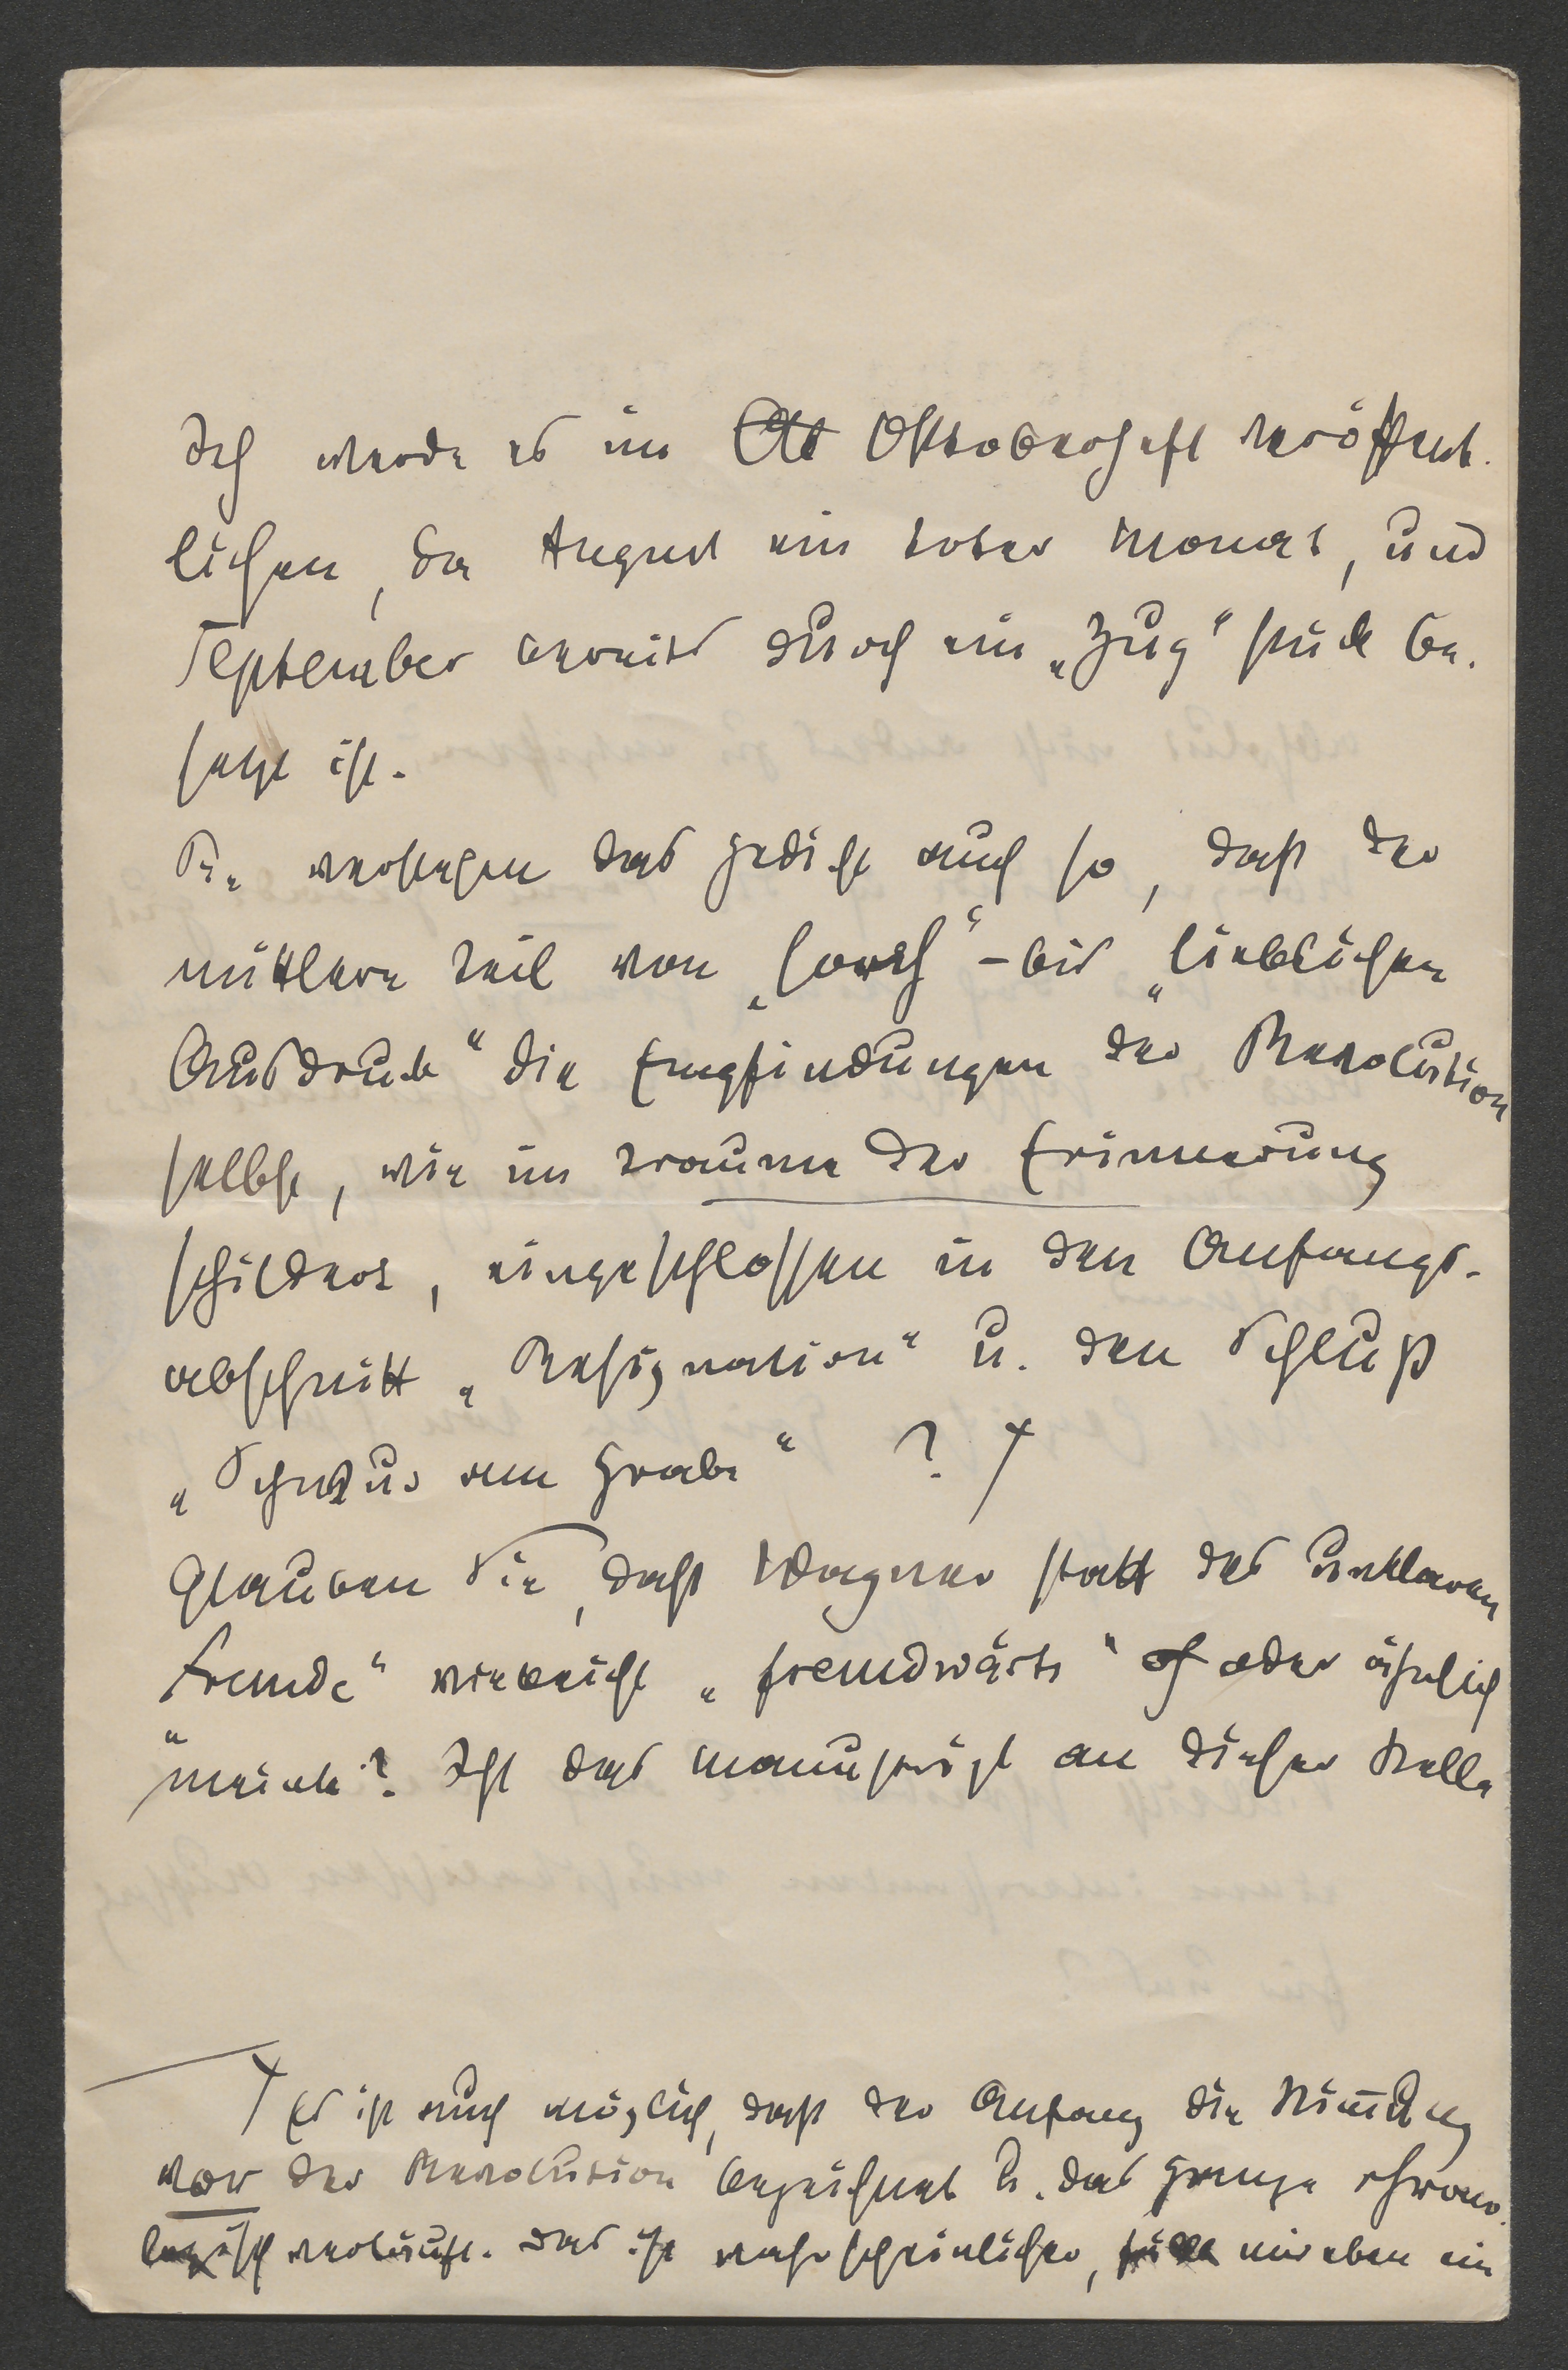 Ich werde es im Okt Oktoberheft veröffent-
lichen, da August ein toter Monat, und
September bereits durch ein „Zug“stück be-
setzt ist.
Sie verstehen das Gedicht auch so, daß der
mittlere Teil von „horch“ - bis „lieblichen
Ausdruck“ die Empfindungen der Revolution
selbst, wie im Traume der Erinnerung
schildert, eingeschlossen in den Anfangs-
abschnitt „Resignation“ u. den Schluß
„Schwur am Grabe“ ? †
Glauben Sie, daß Wagner statt des unklaren
„Fremde“ vielleicht „fremdwärts“ oder ähnlich
meinte? Ist das Manuskript an dieser Stelle
† Es ist auch möglich, daß der Anfang die Stimmung
vor der Revolution bezeichnet u. das Ganze chrono-
logisch verläuft. Das ist wahrscheinlicher, fällt mir eben ein